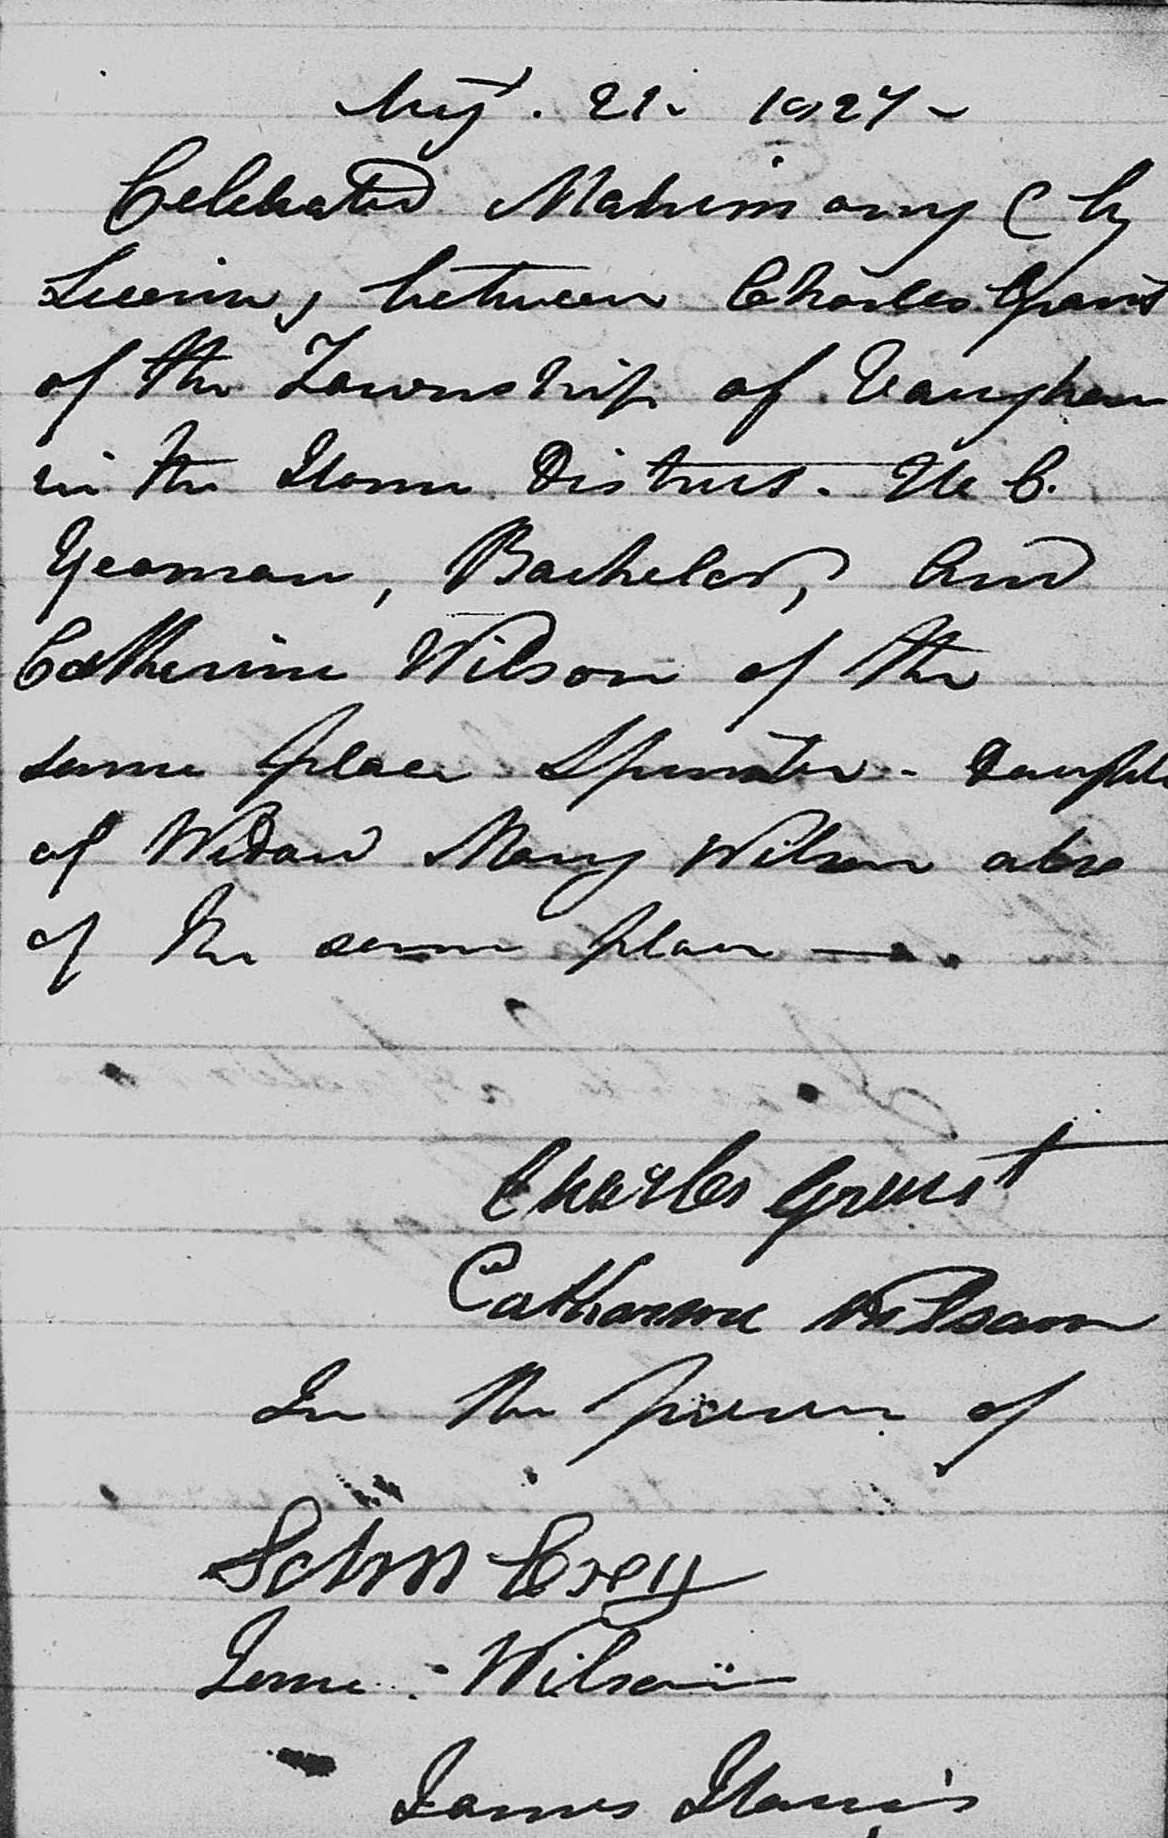 Augt. 21. 1827 -
Celebrated Matrimony (by
Licence, between Charles Grant
of the Township of Vaughan
in the Home District. U C.
Yeoman, Bachelor, and
Catherine Wilson of the
same place Spinster - Daughter
of Widow Mary Wilson also
of the same place —.
Charles Grant
Catharine Wilson
In the presence of
John
Jane Wilson
James Harris